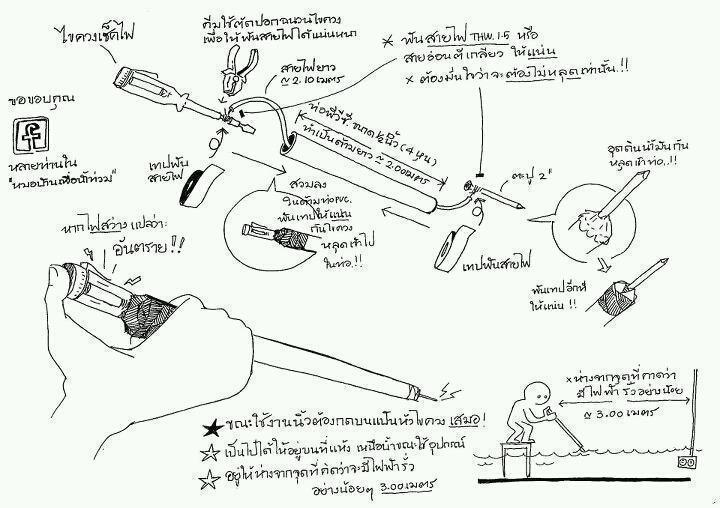 ไขควงเช็คไฟ
คีมใช้ตัดปอกฉนวนไขควง
เพื่อให้พันสายไฟได้แน่นหนา
✕ พันสายไฟ THW 1.5 หรือ
สายอ่อนตีเกลียว ให้แน่น
✕ ต้องมั่นใจว่าจะต้องไม่หลุดเท่านั้น!!
สายไฟยาว
≈ 2.10 เมตร
ขอขอบคุณ
f
หลายท่านใน
"หมอบ้านเพื่อน้ำท่วม"
เทปพัน
สายไฟ
ท่อพีวีซี. ขนาด ½ นิ้ว (4 หุน)
ทำเป็นด้ามยาว ≈ 2.00 เมตร
สวมลง
ในด้ามท่อ PVC.
พันเทปให้แน่น
กันไขควง
หลุดเข้าไป
ในท่อ.!
ตะปู 2"
อุดดินน้ำมันกัน
หลุดเข้าท่อ..!!
เทปพันสายไฟ
พันเทปอีกที
ให้แน่น !!
หากไฟสว่างแปลว่า:
อันตราย!!
✕ ห่างจากจุดที่คาดว่า
มีไฟฟ้ารั่วอย่างน้อย
≈ 3.00 เมตร
★ ขณะใช้งานนิ้วต้องกดบนแป้นหัวไขควง เสมอ!
☆ เป็นไปได้ให้อยู่บนที่แห้ง เหนือน้ำขณะใช้อุปกรณ์
☆ อยู่ให้ห่างจากจุดที่คิดว่าจะมีไฟฟ้ารั่ว
อย่างน้อยๆ 3.00 เมตร